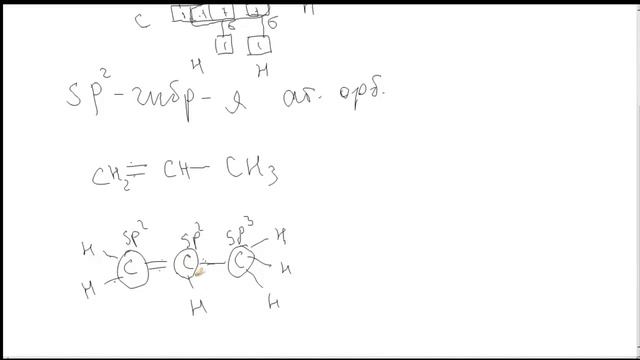 C 1 1 1 1 H
б б
1 1
H H
sp² – гибр – я ат. орб.
CH₂ = CH – CH3
sp² sp² sp³
H H
C = C – C H
H H H